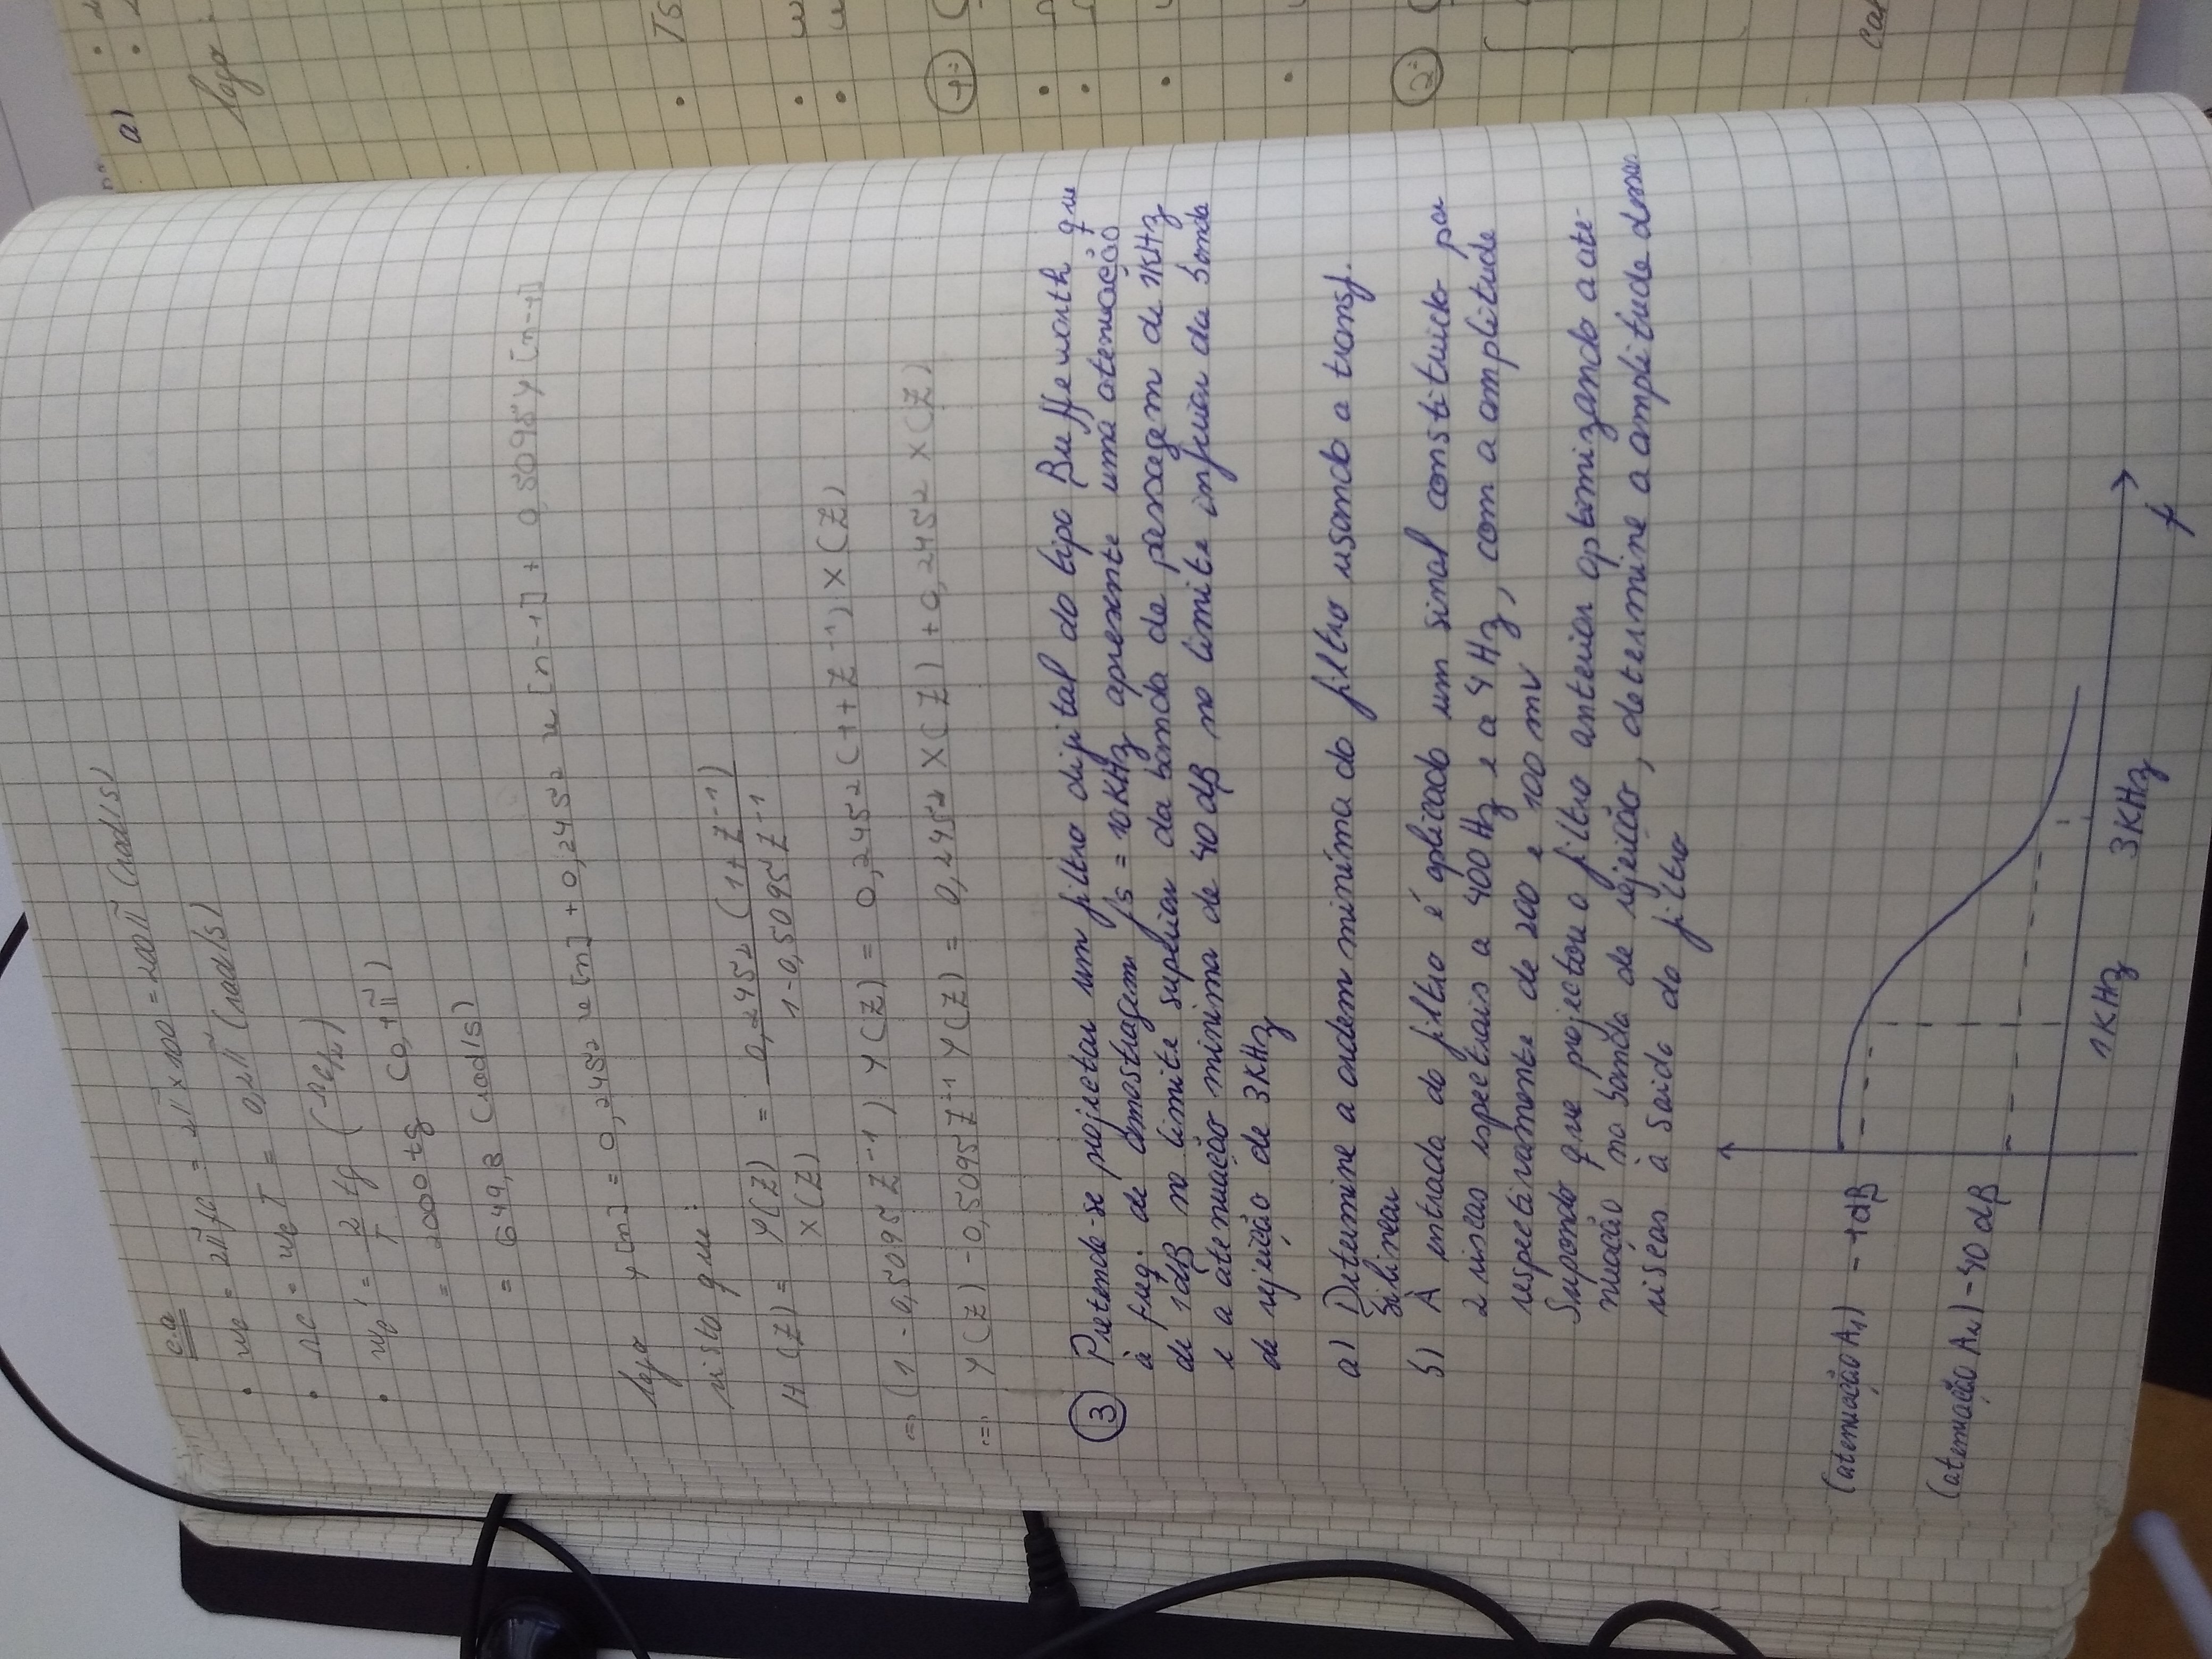 c.a
• wc = 2πfc = 2π×100 = 200π (rad/s)
• Ωc = wc T = 0,2π (rad/s)
• wc' = 2/T tg (Ωc/2)
= 2000 tg (0,1π)
= 649,8 (rad/s)
logo y[n] = 0,2452 x[n] + 0,2452 x[n-1] + 0,5095 y[n-1]
visto que:
H(Z) = Y(Z)/X(Z) = 0,2452 (1+Z⁻¹)/1-0,5095Z⁻¹
=> (1-0,5095Z⁻¹) Y(Z) = 0,2452 (1+Z⁻¹) X(Z)
=> Y(Z) -0,5095Z⁻¹ Y(Z) = 0,2452 X(Z) + 0,2452 X(Z)
③ Pretende-se projectar um filtro digital do tipo Butterworth que
à freq. de amostragem fs = 10KHz apresente uma atenuação
de 1dB no limite superior da banda de passagem de 1KHz
e a atenuação minima de 40 dB no limite inferior da banda
de rejeição de 3KHz
a) Determine a ordem minima do filtro usando a transf.
bilinear
b) À entrada do filtro é aplicado um sinal constituido por
2 riscas espectrais a 400Hz e a 4Hz, com a amplitude
respectivamente de 200 e 100 mV
Supondo que projectou o filtro anterior optimizando a ate-
nuação na banda de rejeição, determine a amplitude dmas
riscas à saida do filtro
(atenuação A₁) -1dB
(atenuação A₂) -40 dB
1KHz 3KHz
f
a)
logo
Ts
1º
2º